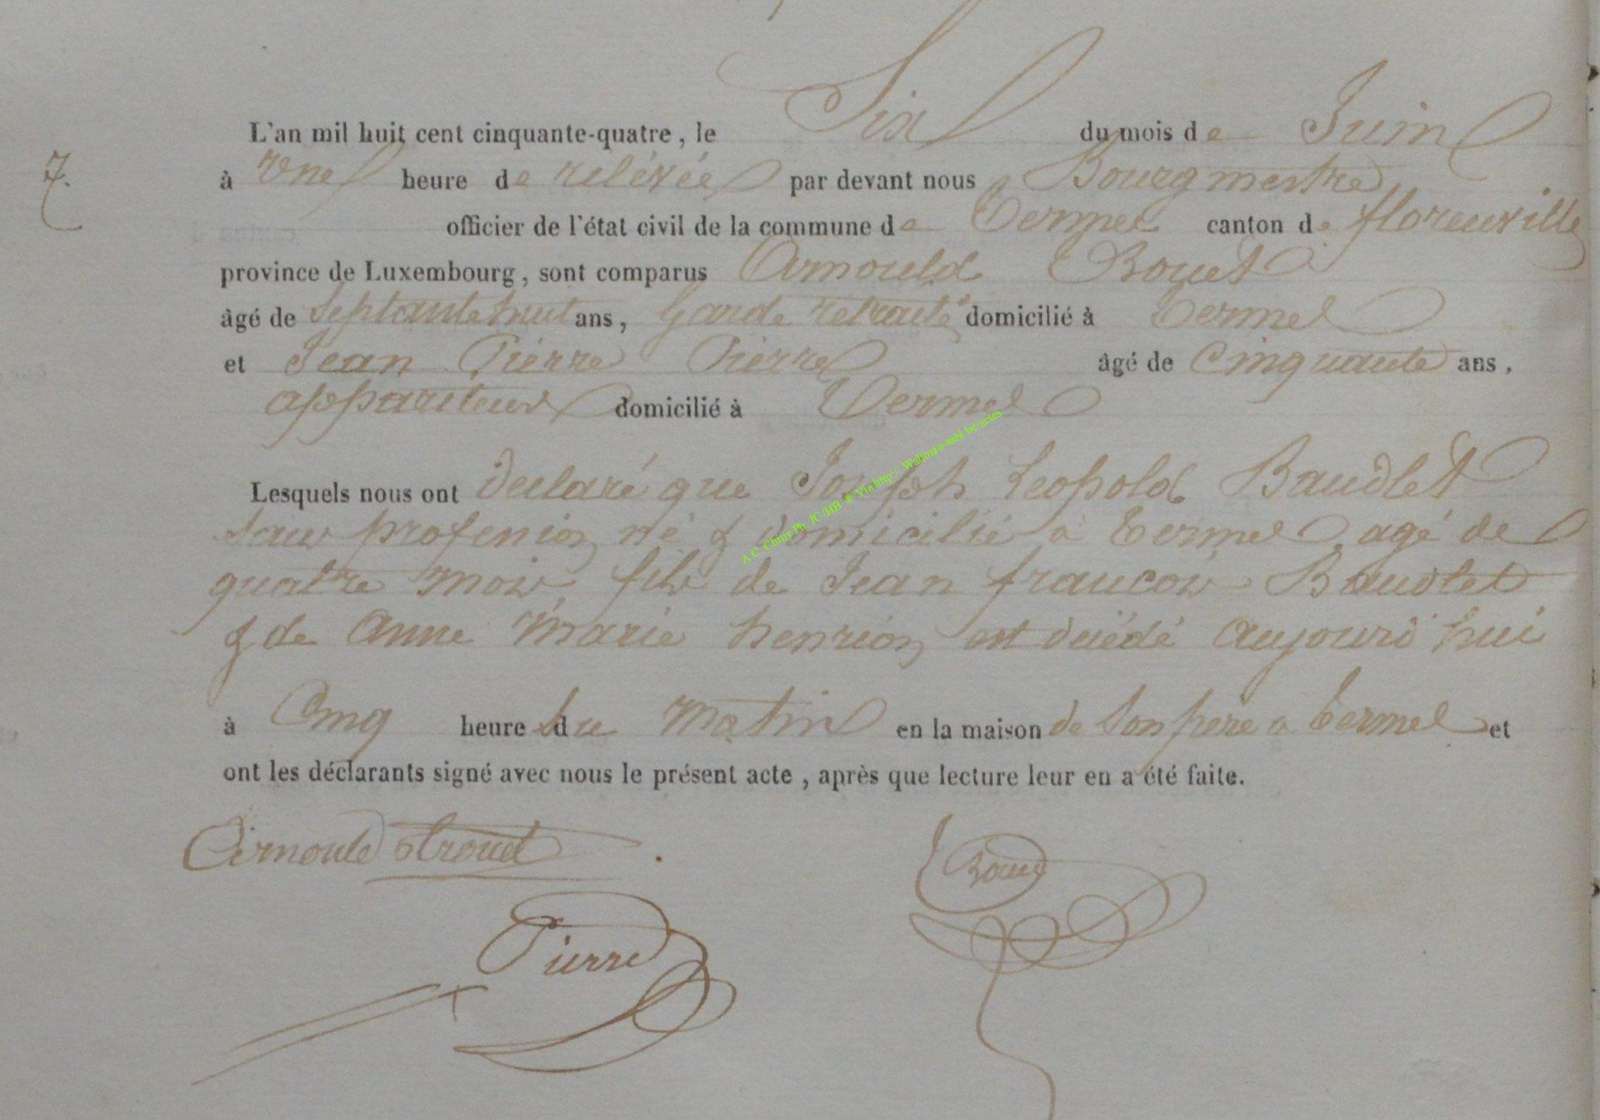 L'an mil huit cent cinquante-quatre, le Six du mois de Juin
7.
à une heure de relévée par devant nous Bourgmestre
officier de l'état civil de la commune de Termes canton de florenville
province de Luxembourg, sont comparus Arnould Bouet
âgé de Septante huit ans, Garde retraité domicilié à Termes
et Jean Pierre Pierre âgé de Cinquante ans,
appariteur domicilié à Termes
Lesquels nous ont déclaré que Joseph Leopold Baudlet
sans profession né & domicilié à Termes agé de
quatre mois, fils de Jean françois Baudlet
& de Anne Marie henrion est décédé aujourd'hui
à Cinq heure du Matin en la maison de son père a Termes et
ont les déclarants signé avec nous le présent acte, après que lecture leur en a été faite.
Arnould
Pierre